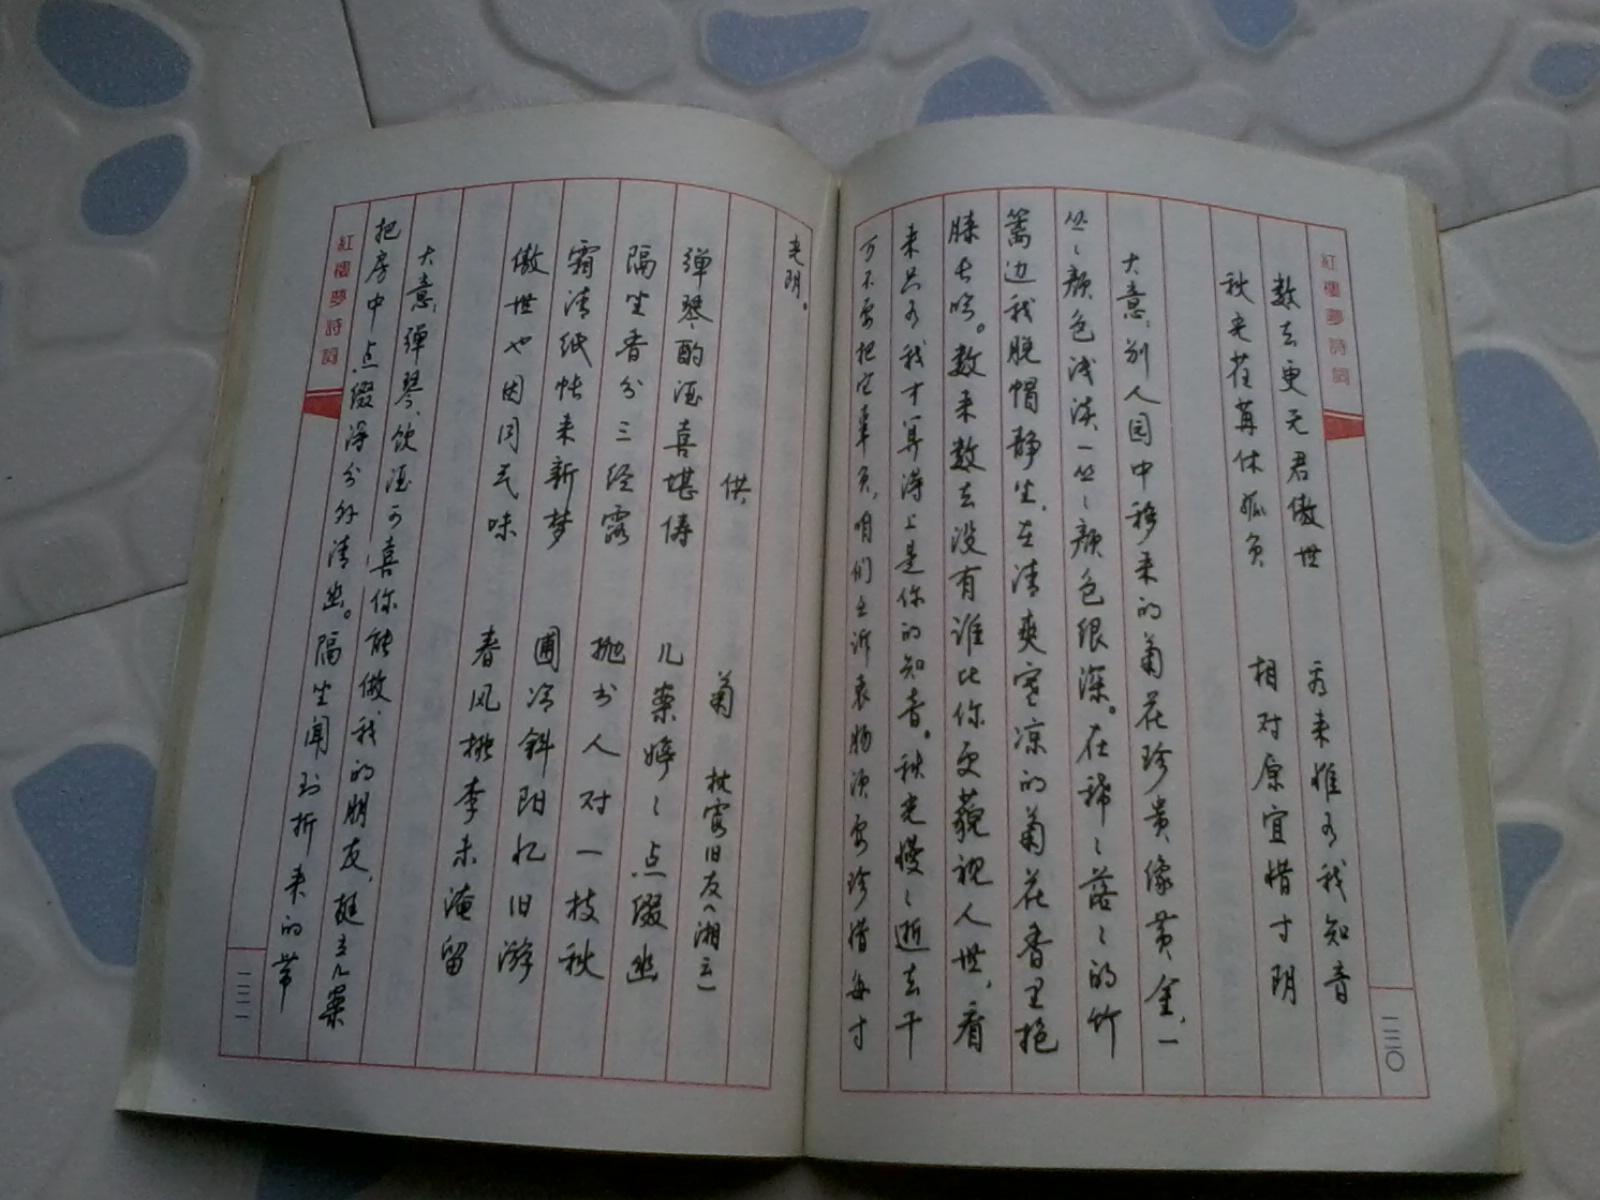 紅樓夢詩詞
数去更无君傲世 看来惟有我知音
秋光荏苒休孤负 相对原宜惜寸阴
大意：别人园中移来的菊花珍贵像黄金，一
丛丶颜色浅淡一丛丶颜色很深。在稀丶落丶的竹
篱边我脱帽静坐，在清爽寒凉的菊花香里抱
膝长吟。数来数去没有谁比你更藐视人世，看
来只有我才算得上是你的知音。秋光慢丶逝去千
万不要把它辜负，咱们互诉衷肠须要珍惜每寸
二二〇
光阴。
供 菊 枕霞旧友（湘云）
弹琴酌酒喜堪俦 几案婷丶点缀幽
隔坐香分三径露 抛书人对一枝秋
霜清纸帐来新梦 圃冷斜阳忆旧游
傲世也因同气味 春风桃李未淹留
大意：弹琴、饮酒可喜你能做我的朋友，挺立几案
把房中点缀得分外清幽。隔坐闻到折来的带
紅樓夢詩詞
二二一